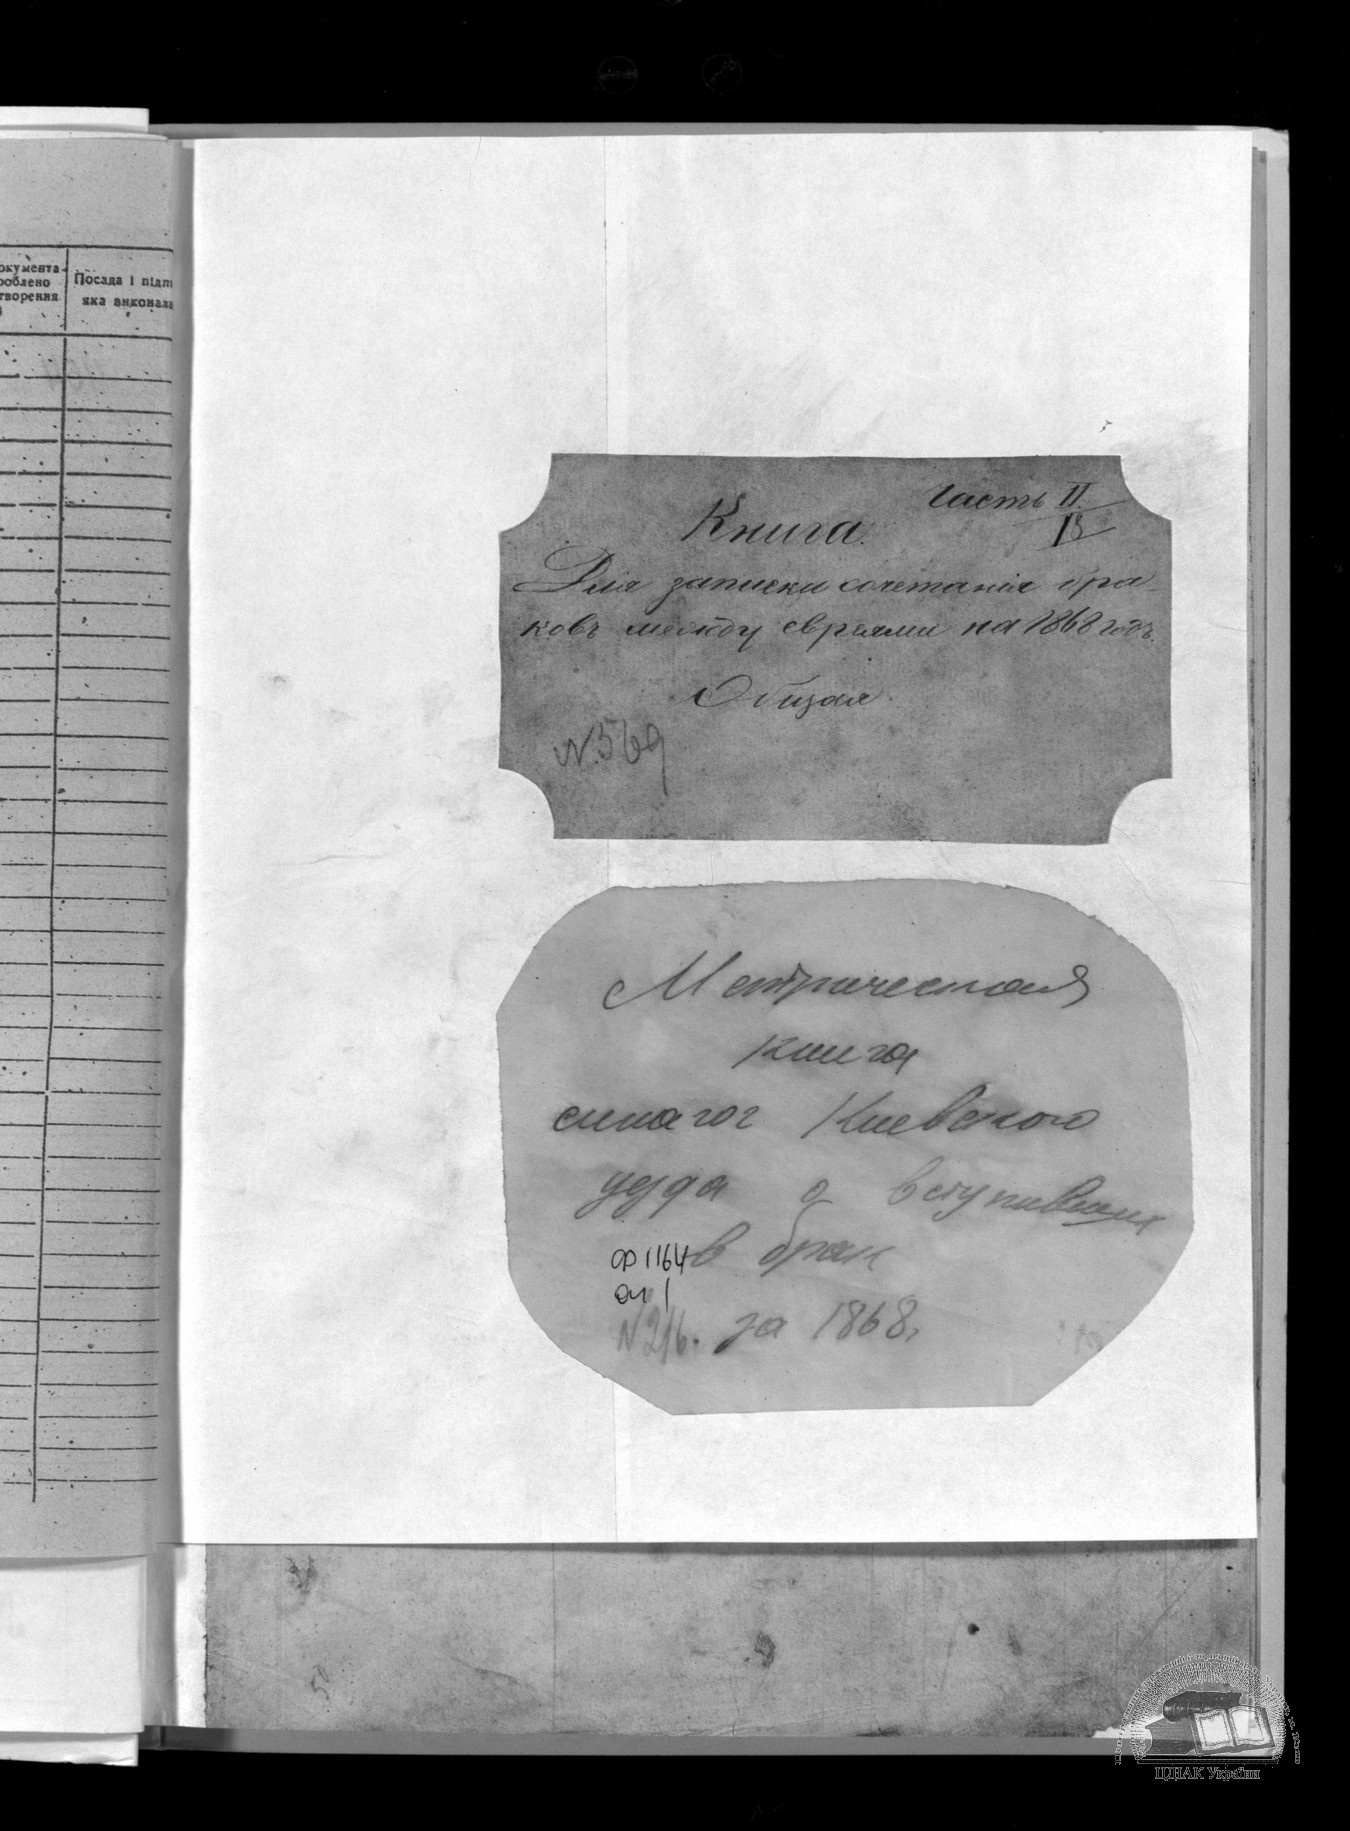 окумента
роблено
творення
Посада і підп
яка виконала
Часть II.
13
Книга.
Для записки сочетанія бра-
ковъ между евреями на 1868 годъ.
Общая.
N. 569
Метрическая
книга
синагог Киевского
уезда о вступивших
в брак
ф 1164
оп 1
N 216. за 1868,
50
ЦДІАК України